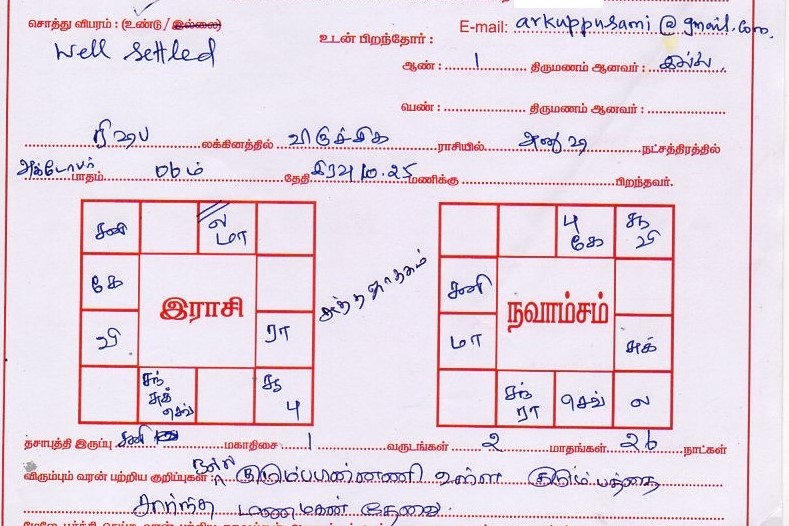 சொத்து விபரம் : (உண்டு / இல்லை)
E-mail: arkuppusami@gmail.com.
Well Settled
உடன் பிறந்தோர் :
ஆண் : 1 திருமணம் ஆனவர் : இல்லை
பெண் : திருமணம் ஆனவர் :
ரிஷப லக்கினத்தில் விருச்சிக ராசியில் அனுஷ நட்சத்திரத்தில்
அக்டோபர் பாதம் 06ம் தேதி இரவு 10.25 மணிக்கு பிறந்தவர்.
சனி ல மா
பு கே சூ வி
கே சனி
இராசி சுத்த ஜாதகம் நவாம்சம்
வி ரா மா சுக்
சந் சுக் செவ் சூ பு
சந் ரா செவ் ல
தசாபுத்தி இருப்பு சனி மகாதிசை 1 வருடங்கள் 2 மாதங்கள் 26 நாட்கள்
விரும்பும் வரன் பற்றிய குறிப்புகள் : நல்ல குடும்பபின்னணி உள்ள குடும்பத்தை
சார்ந்த மணமகன் தேவை.